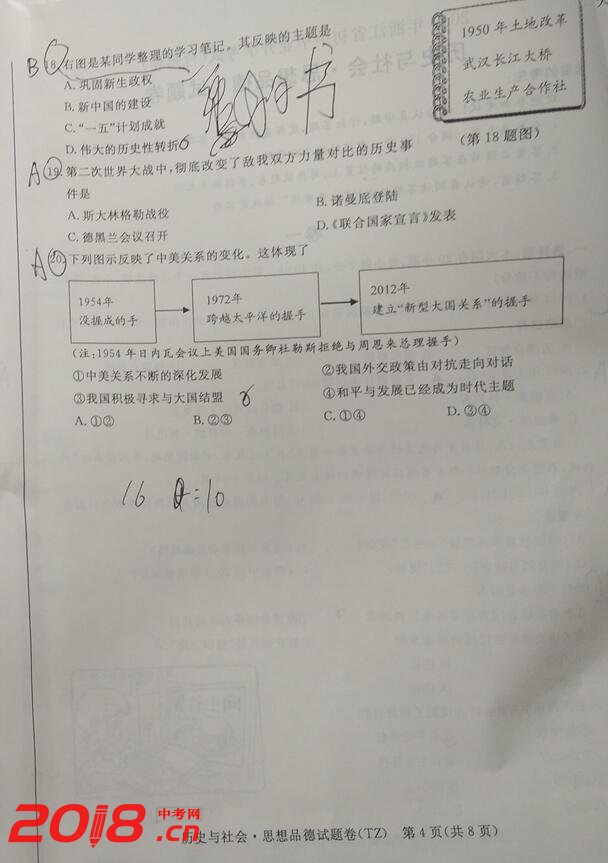 B 18.右图是某同学整理的学习笔记。其反映的主题是
A.巩固新生政权
B.新中国的建设
C.“一五”计划成就
D.伟大的历史性转折
1950年土地改革
武汉长江大桥
农业生产合作社
(第18题图)
A 19.第二次世界大战中,彻底改变了敌我双方力量对比的历史事
件是
A.斯大林格勒战役
B.诺曼底登陆
C.德黑兰会议召开
D.《联合国家宣言》发表
A 20.下列图示反映了中美关系的变化。这体现了
1954年
没握成的手
1972年
跨越太平洋的握手
2012年
建立“新型大国关系”的握手
(注:1954年日内瓦会议上美国国务卿杜勒斯拒绝与周恩来总理握手)
①中美关系不断的深化发展
②我国外交政策由对抗走向对话
③我国积极寻求与大国结盟
④和平与发展已经成为时代主题
A.①②
B.②③
C.①④
D.③④
16
=10
2018.中考网
.cn
历史与社会·思想品德试题卷(TZ) 第4页(共8页)